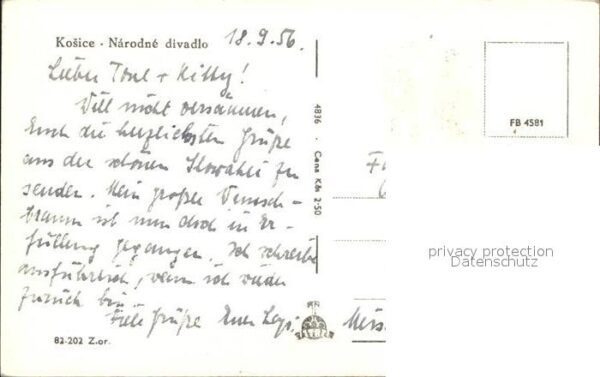 Košice - Národné divadlo
18.9.56
Lieber Toul + Kitty!
Will nicht versäumen,
Euch die herzlichsten Grüße
aus der schönen Slowakei zu
senden. Mein großer Wunsch-
traum ist nun doch in Er-
füllung gegangen. Ich schreibe
ausführlich, wenn ich wieder
zurück bin.
Viele Grüße Euer
82-202 Z.or.
4836 · Cena Kčs 2·50
FB 4581
privacy protection
Datenschutz